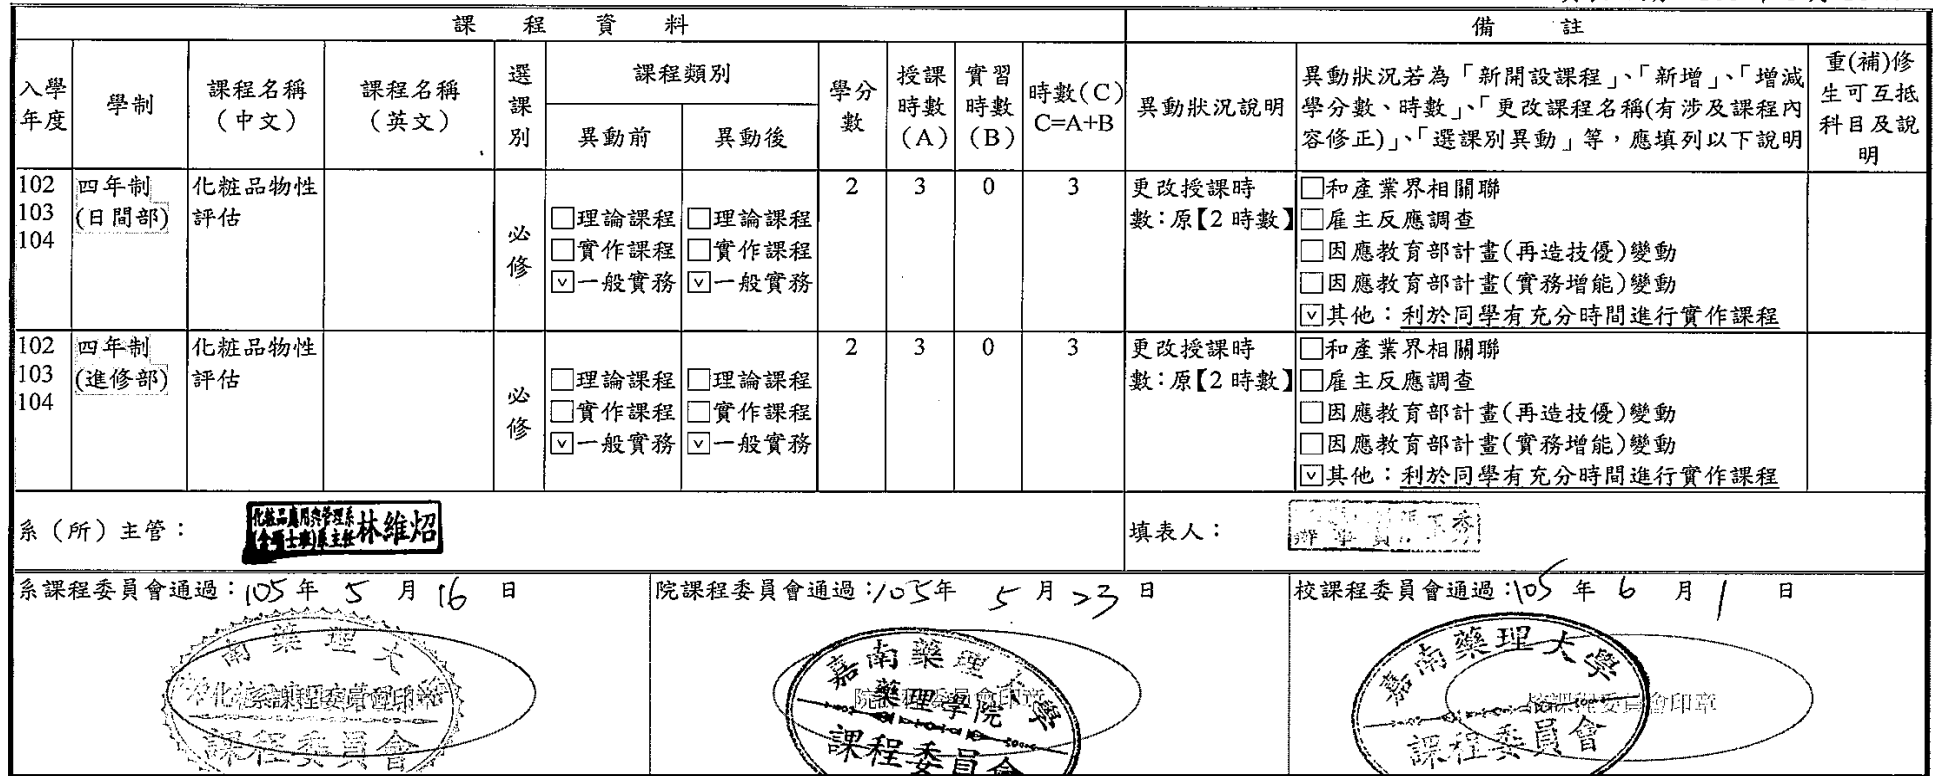 課程資料
備註
入學年度
學制
課程名稱(中文)
課程名稱(英文)
選課別
課程類別
異動前
異動後
學分數
授課時數(A)
實習時數(B)
時數(C)
C=A+B
異動狀況說明
異動狀況若為「新開設課程」、「新增」、「增減
學分數、時數」、「更改課程名稱(有涉及課程內
容修正)」、「選課別異動」等，應填列以下說明
重(補)修
生可互抵
科目及說
明
102
103
104
四年制
(日間部)
化粧品物性
評估
必修
□理論課程 □理論課程
□實作課程 □實作課程
☑一般實務 ☑一般實務
2 3 0 3
更改授課時
數：原【2 時數】
□和產業界相關聯
□雇主反應調查
□因應教育部計畫(再造技優)變動
□因應教育部計畫(實務增能)變動
☑其他：利於同學有充分時間進行實作課程
102
103
104
四年制
(進修部)
化粧品物性
評估
必修
□理論課程 □理論課程
□實作課程 □實作課程
☑一般實務 ☑一般實務
2 3 0 3
更改授課時
數：原【2 時數】
□和產業界相關聯
□雇主反應調查
□因應教育部計畫(再造技優)變動
□因應教育部計畫(實務增能)變動
☑其他：利於同學有充分時間進行實作課程
系（所）主管：
化粧品應用與管理系
(含碩士班)系主任 林維炤
填表人：
系課程委員會通過：105 年 5 月 16 日
院課程委員會通過：105 年 5 月 23 日
校課程委員會通過：105 年 6 月 1 日
南藥理大
課程委員會
嘉南藥理大學
藥理學院
院課程委員會印章
課程委員會
嘉南藥理大學
校課程委員會印章
課程委員會